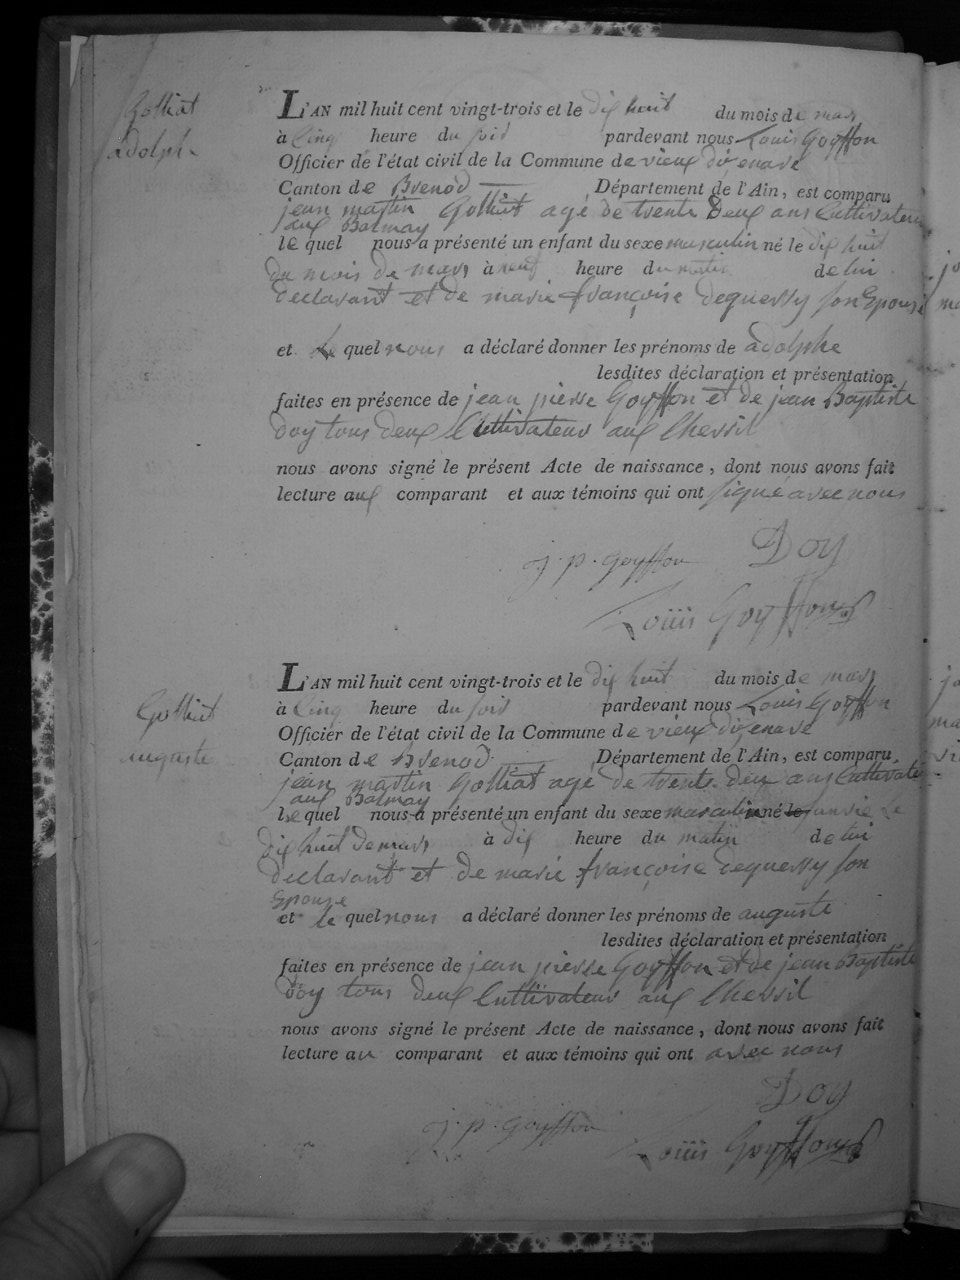 Golliat
adolphe
L'AN mil huit cent vingt-trois et le dix huit du mois de mars
à Cinq heure du soir pardevant nous Louis Goyffon
Officier de l'état civil de la Commune de vieux d'izenave
Canton de Brenod Département de l'Ain, est comparu
jean martin Golliat agé de trente deux ans Cultivateur
aux Balmay
le quel nous a présenté un enfant du sexe masculin né le dix huit
du mois de mars à neuf heure du matin de lui
declarant et de marie françoise deguerry son Epouse
et le quel nous a déclaré donner les prénoms de adolphe
lesdites déclaration et présentation
faites en présence de jean pierre Goyffon et de jean Baptiste
doy tous deux Cultivateur aux
nous avons signé le présent Acte de naissance, dont nous avons fait
lecture aux comparant et aux témoins qui ont signé avec nous
j. p. goyffon Doy
Louis Goyffon
Golliat
auguste
L'AN mil huit cent vingt-trois et le dix huit du mois de mars
à Cinq heure du soir pardevant nous Louis Goyffon
Officier de l'état civil de la Commune de vieux d'izenave
Canton de Brenod Département de l'Ain, est comparu
jean martin Golliat agé de trente deux ans Cultivateur
aux Balmay
le quel nous a présenté un enfant du sexe masculin né le
dix huit de mars à dix heure du matin de lui
declarant et de marie françoise deguerry son
Epouse
et le quel nous a déclaré donner les prénoms de auguste
lesdites déclaration et présentation
faites en présence de jean pierre Goyffon et de jean Baptiste
doy tous deux Cultivateur aux
nous avons signé le présent Acte de naissance, dont nous avons fait
lecture au comparant et aux témoins qui ont avec nous
Doy
j. p. goyffon
Louis Goyffon